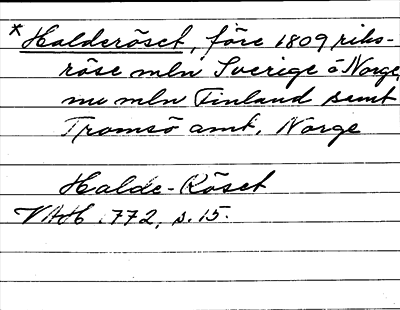 *Halderöset, före 1809 riks-
röse mln Sverige o Norge,
nu mln Finland samt
Tromsö amt, Norge
Halde-Röset
VAH 772, s. 15.